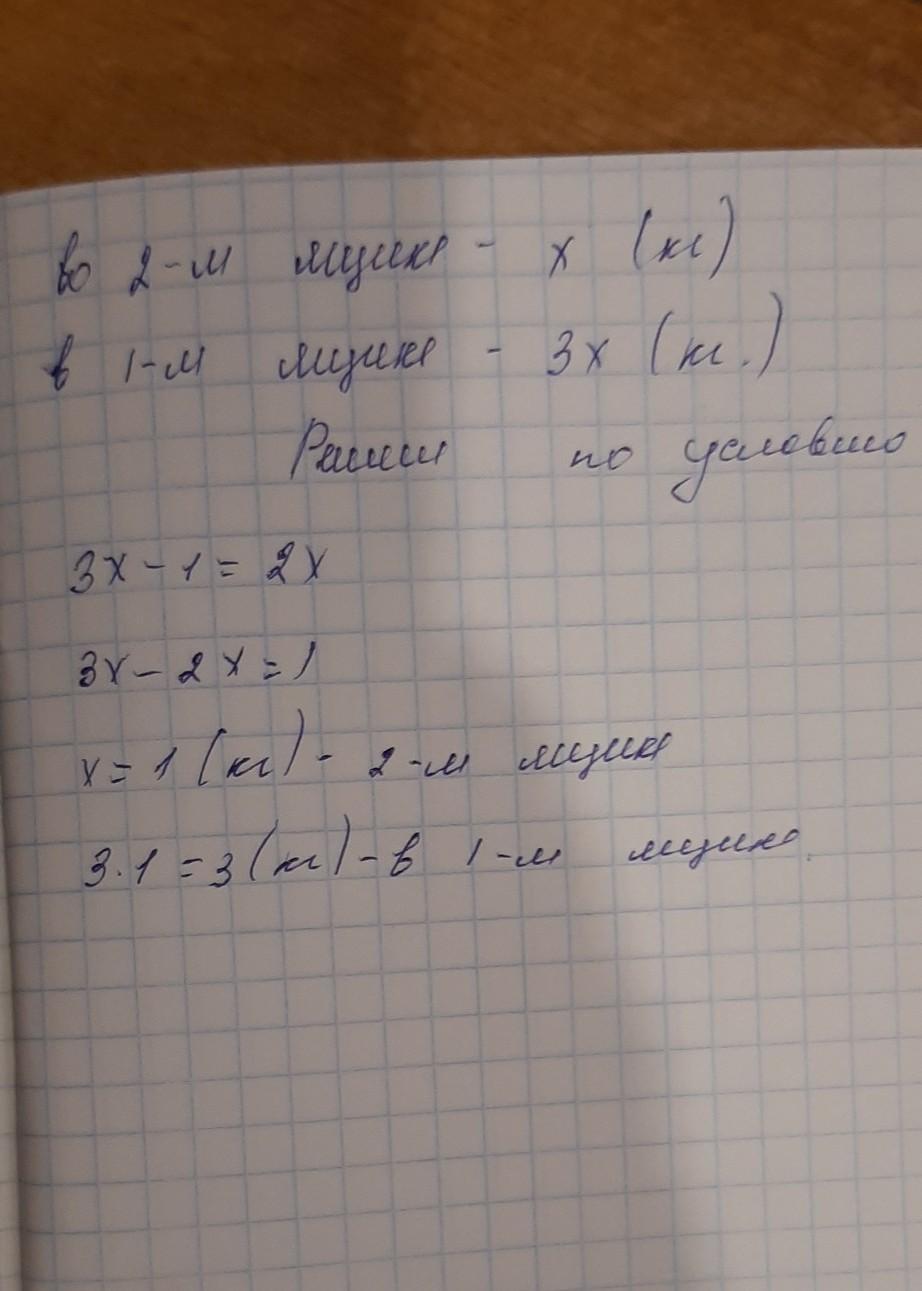 Во 2-м ящике - x (кг)
в 1-м ящике - 3x (кг.)
Реши по условию
3x - 1 = 2x
3x - 2x = 1
x = 1 (кг) - 2-м ящике
3 · 1 = 3 (кг) - в 1-м ящике.